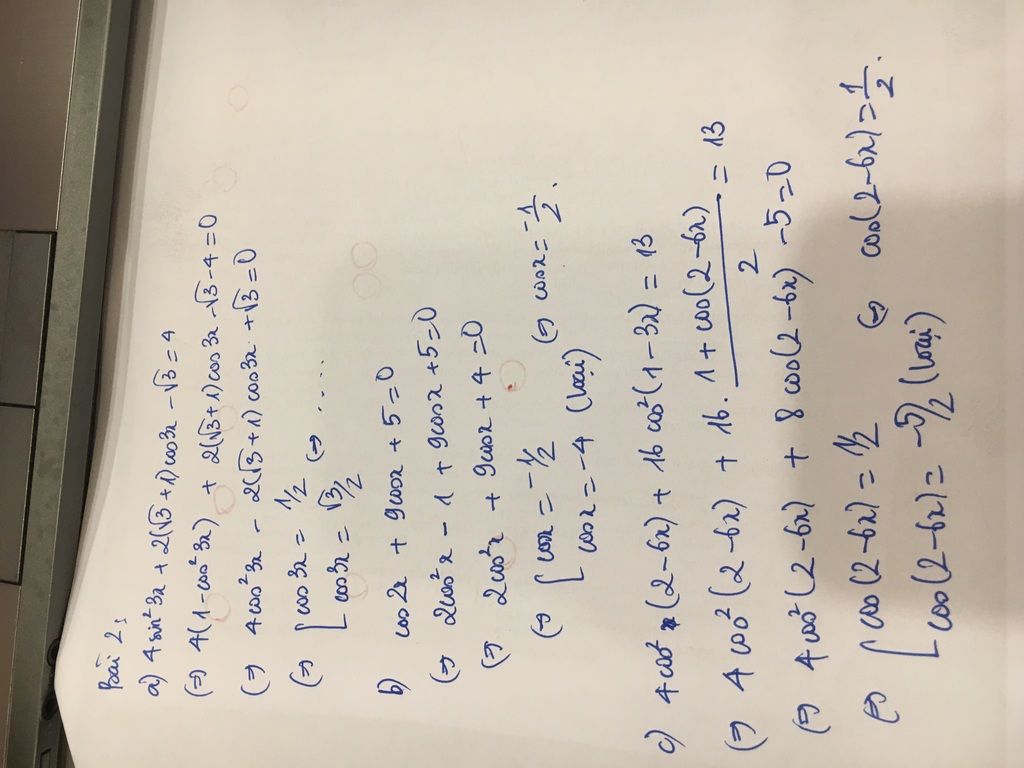 Bài 2:
a) 4sin²3x + 2(√3+1)cos3x - √3 = 4
(=) 4(1-cos²3x) + 2(√3+1)cos3x - √3 - 4 = 0
(=) 4cos²3x - 2(√3+1)cos3x + √3 = 0
(=) [ cos3x = 1/2
cos3x = √3/2 (=) .....
b) cos2x + 9cosx + 5 = 0
(=) 2cos²x - 1 + 9cosx + 5 = 0
(=) 2cos²x + 9cosx + 4 = 0
(=) [ cosx = -1/2 (=) cosx = -1/2.
cosx = -4 (loại)
c) 4cos²(2-6x) + 16cos²(1-3x) = 13
(=) 4cos²(2-6x) + 16. (1+cos(2-6x))/2 = 13
(=) 4cos²(2-6x) + 8cos(2-6x) - 5 = 0
(=) [ cos(2-6x) = 1/2 (=) cos(2-6x) = 1/2.
cos(2-6x) = -5/2 (loại)